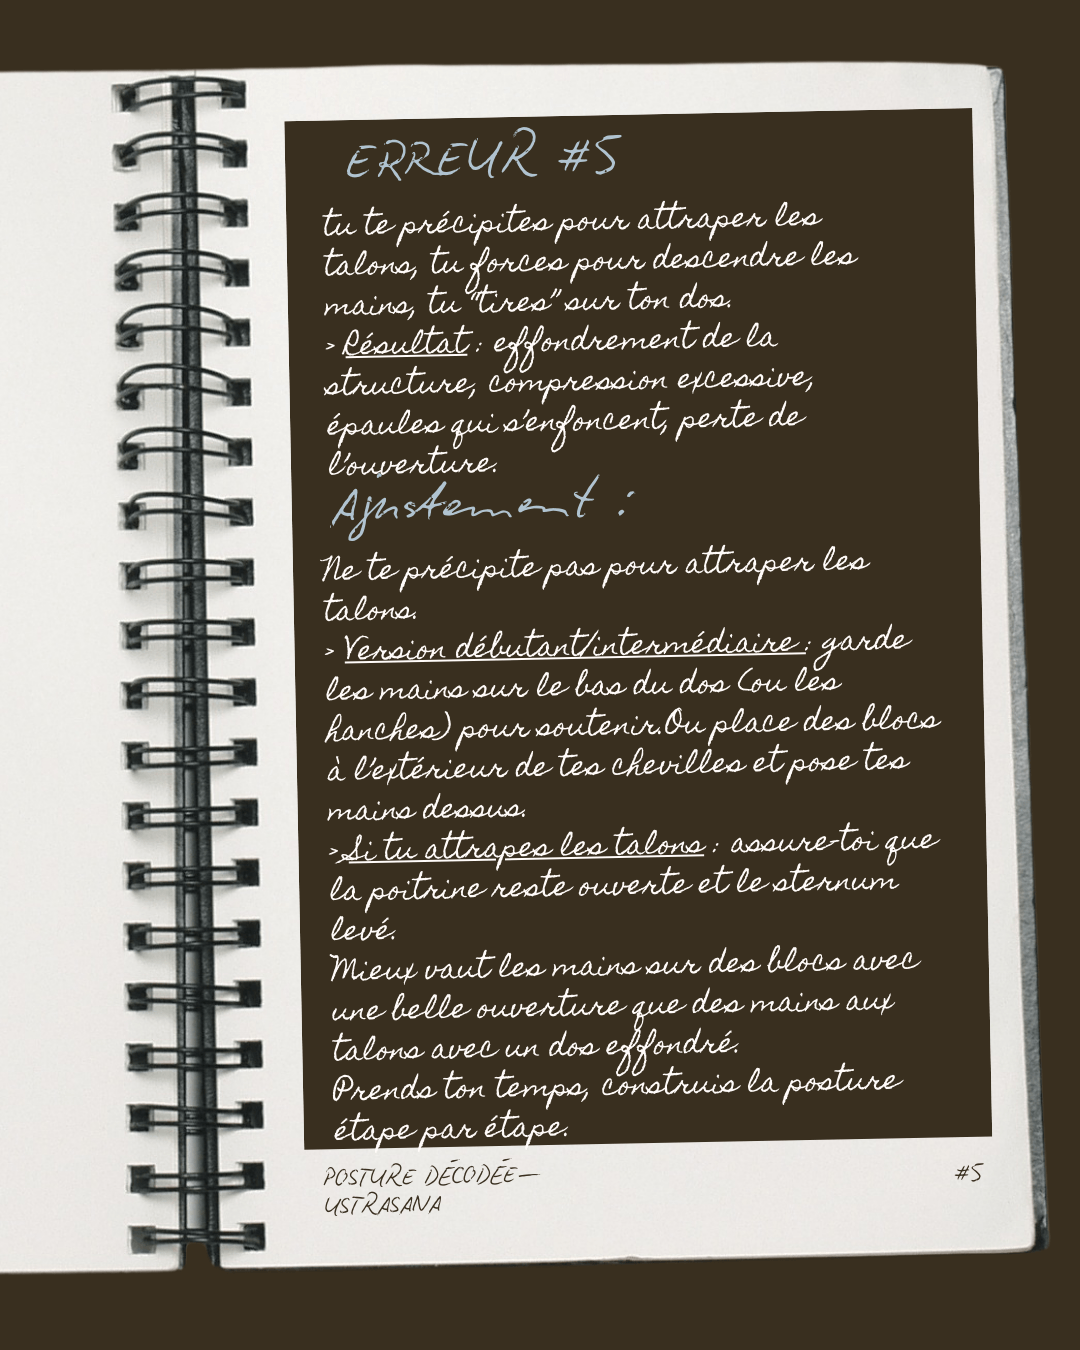 ERREUR #5
tu te précipites pour attraper les
talons, tu forces pour descendre les
mains, tu "tires" sur ton dos.
> Résultat : effondrement de la
structure, compression excessive,
épaules qui s'enfoncent, perte de
l'ouverture.
Ajustement :
Ne te précipite pas pour attraper les
talons.
> Version débutant/intermédiaire : garde
les mains sur le bas du dos (ou les
hanches) pour soutenir.Ou place des blocs
à l'extérieur de tes chevilles et pose tes
mains dessus.
>Si tu attrapes les talons : assure-toi que
la poitrine reste ouverte et le sternum
levé.
Mieux vaut les mains sur des blocs avec
une belle ouverture que des mains aux
talons avec un dos effondré.
Prends ton temps, construis la posture
étape par étape.
POSTURE DÉCODÉE—
USTRASANA
#5